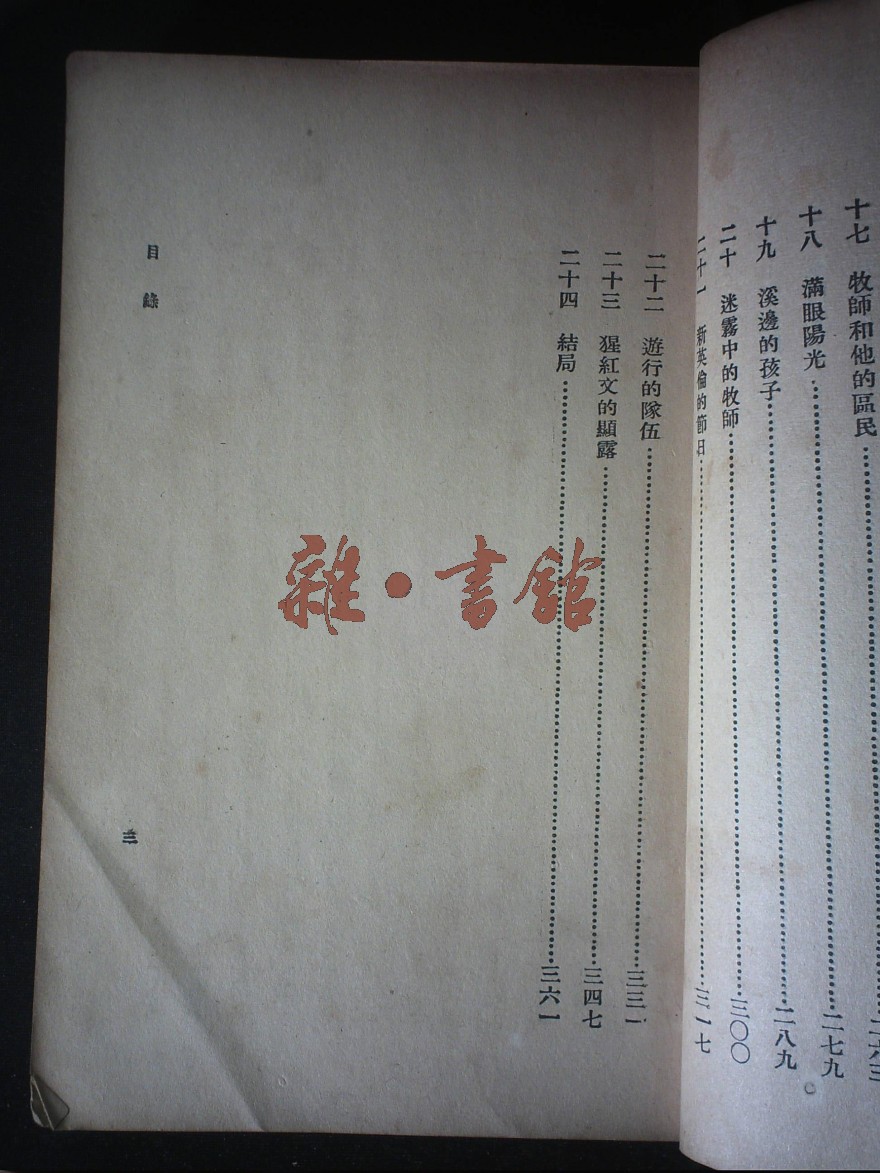 十七 牧師和他的區民……二六三
十八 滿眼陽光……二七九
十九 溪邊的孩子……二八九
二十 迷霧中的牧師……三〇〇
二十一 新英倫的節日……三一七
二十二 遊行的隊伍……三三一
二十三 猩紅文的顯露……三四七
二十四 結局……三六一
目錄
三
雜·書館